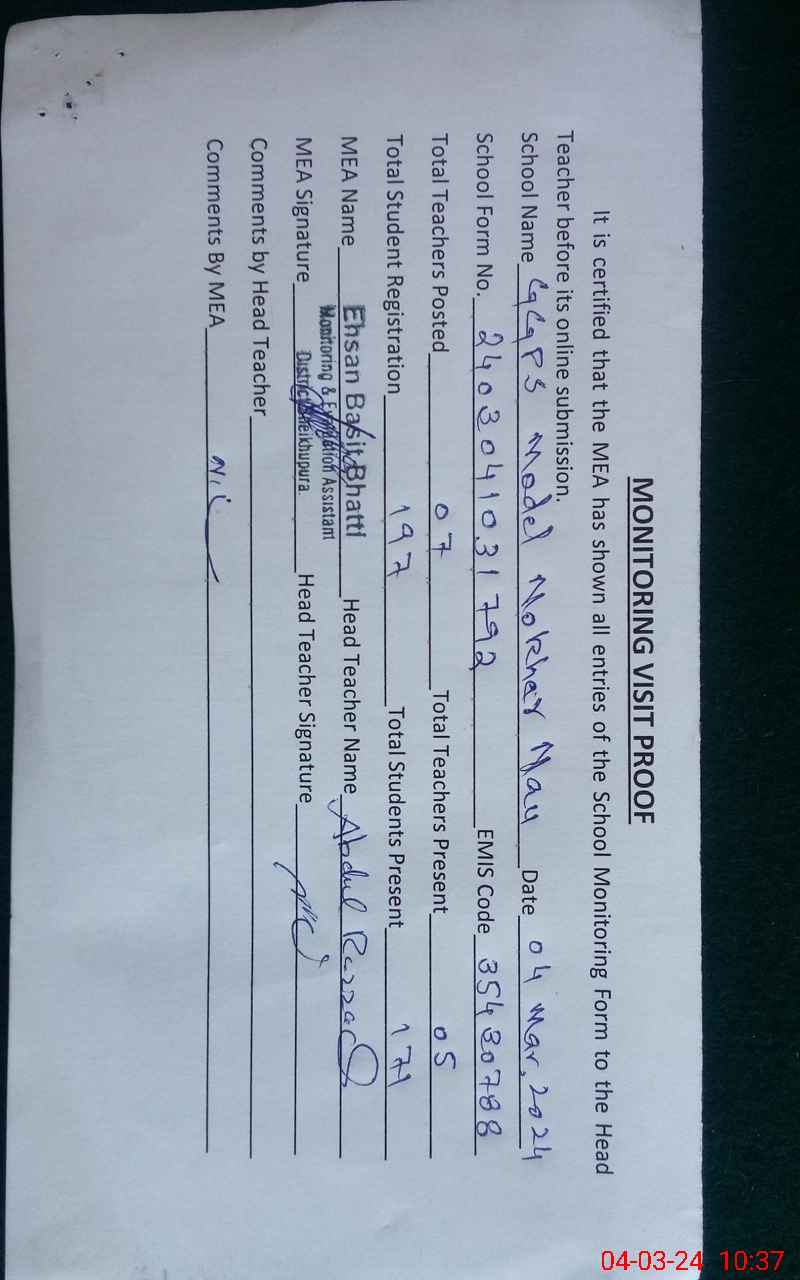 MONITORING VISIT PROOF
It is certified that the MEA has shown all entries of the School Monitoring Form to the Head
Teacher before its online submission.
School Name GGPS Model Nokhar Nau Date 04 Mar, 2024
School Form No. 2403041031792 EMIS Code 35430788
Total Teachers Posted 07 Total Teachers Present 05
Total Student Registration 197 Total Students Present 171
MEA Name Ehsan Basit Bhatti Head Teacher Name Abdul Razzaq
Monitoring & Evaluation Assistant
MEA Signature District Sheikhupura Head Teacher Signature
Comments by Head Teacher
Comments By MEA Nil
04-03-24 10:37